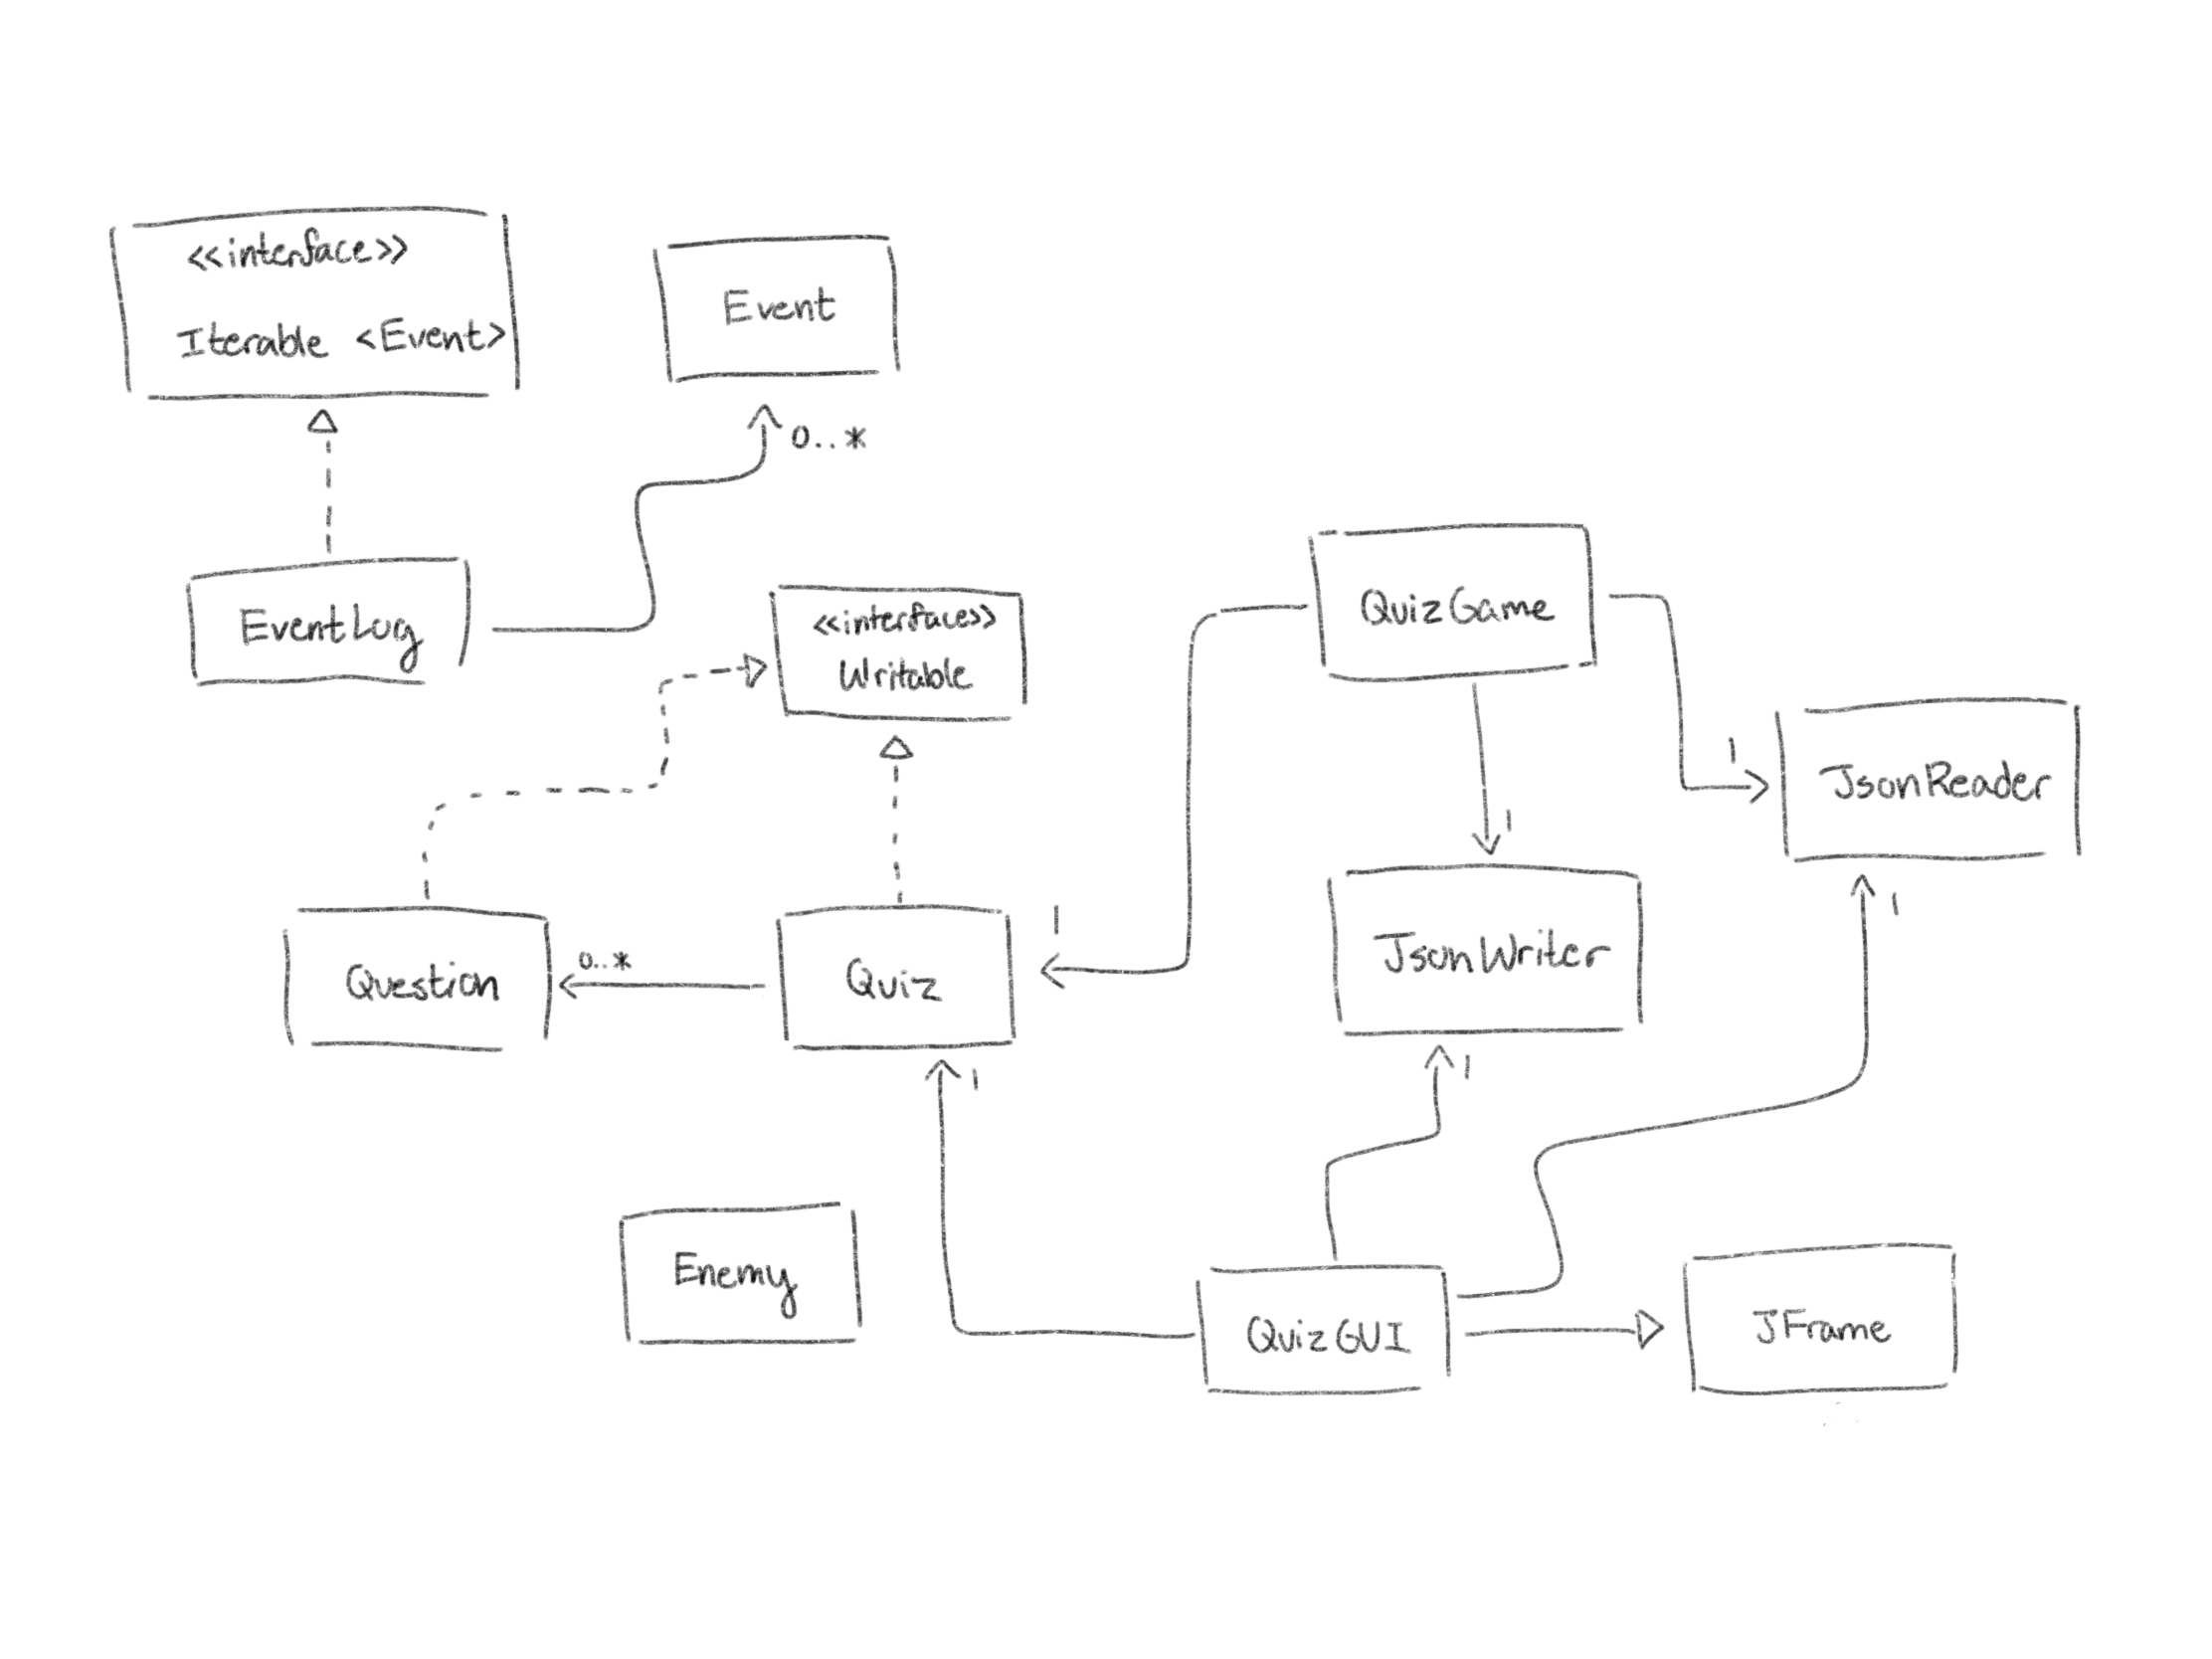 <<interface>>
Iterable <Event>
Event
0..*
EventLog
<<interface>>
Writable
QuizGame
1
JsonReader
1
JsonWriter
1
1
Question
0..*
Quiz
1
1
Enemy
QuizGUI
JFrame